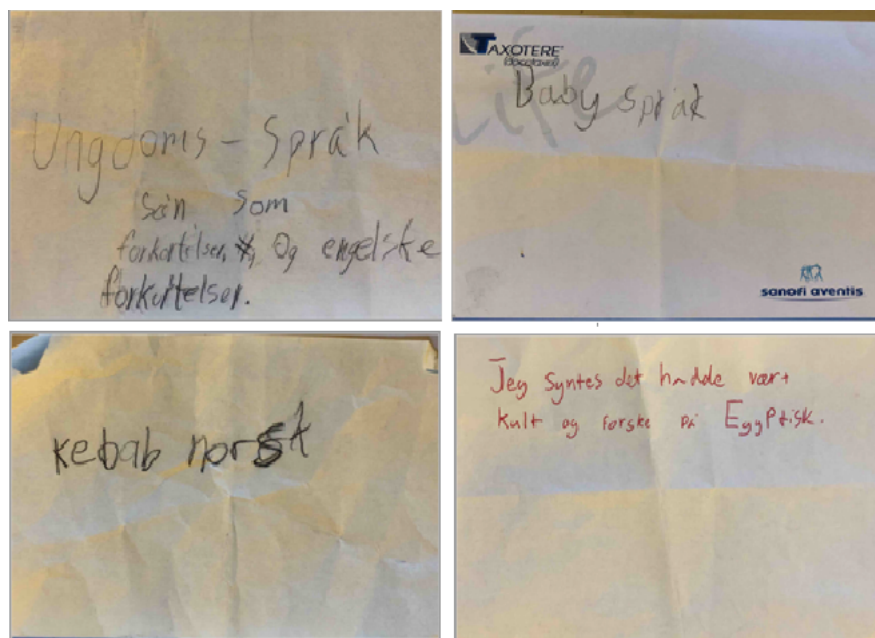 Ungdoms - Språk
sån som
forkortelser, og engelske
forkortelser.
TAXOTERE
Baby språk
sanofi aventis
kebab norsk
Jeg syntes det hadde vært
kult og forske på Egyptisk.